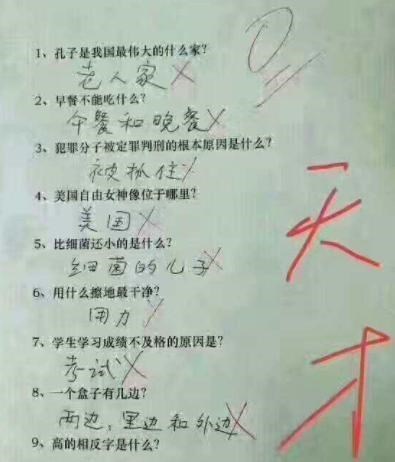 1、孔子是我国最伟大的什么家？
老人家
2、早餐不能吃什么？
午餐和晚餐
3、犯罪分子被定罪判刑的根本原因是什么？
被抓住
4、美国自由女神像位于哪里？
美国
5、比细菌还小的是什么？
细菌的儿子
6、用什么擦地最干净？
用力
7、学生学习成绩不及格的原因是？
考试
8、一个盒子有几边？
两边，里边和外边
9、高的相反字是什么？
0
天才